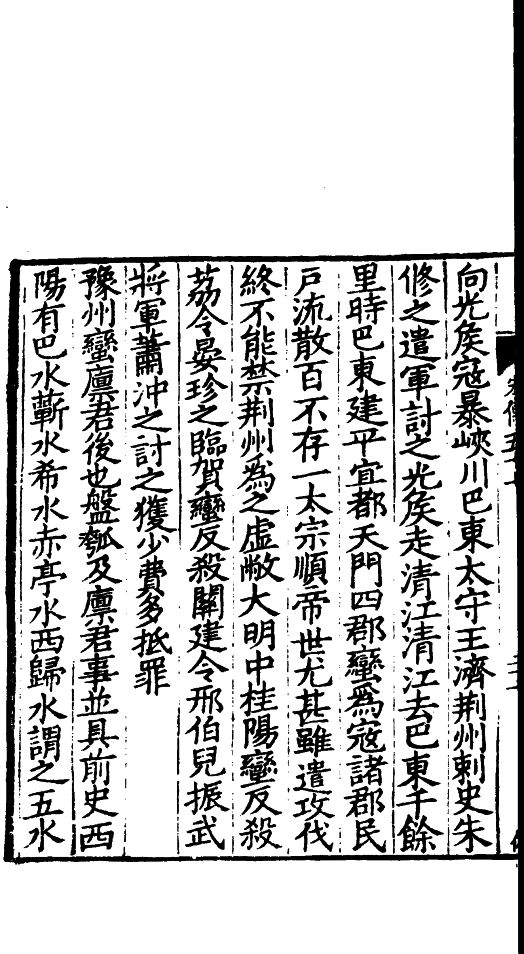 向光矦寇暴峽川巴東太守王濟荆州刺史朱
脩之遣軍討之光矦走清江清江去巴東千餘
里時巴東建平宜都天門四郡蠻爲寇諸郡民
戸流散百不存一太宗順帝世尤甚雖遣攻伐
終不能禁荆州爲之虚敝大明中桂陽蠻反殺
荔令晏珍之臨賀蠻反殺關建令邢伯兒振武
將軍蕭沖之討之獲少費多抵罪
豫州蠻廪君後也盤瓠及廪君事並具前史西
陽有巴水蘄水希水赤亭水西歸水謂之五水